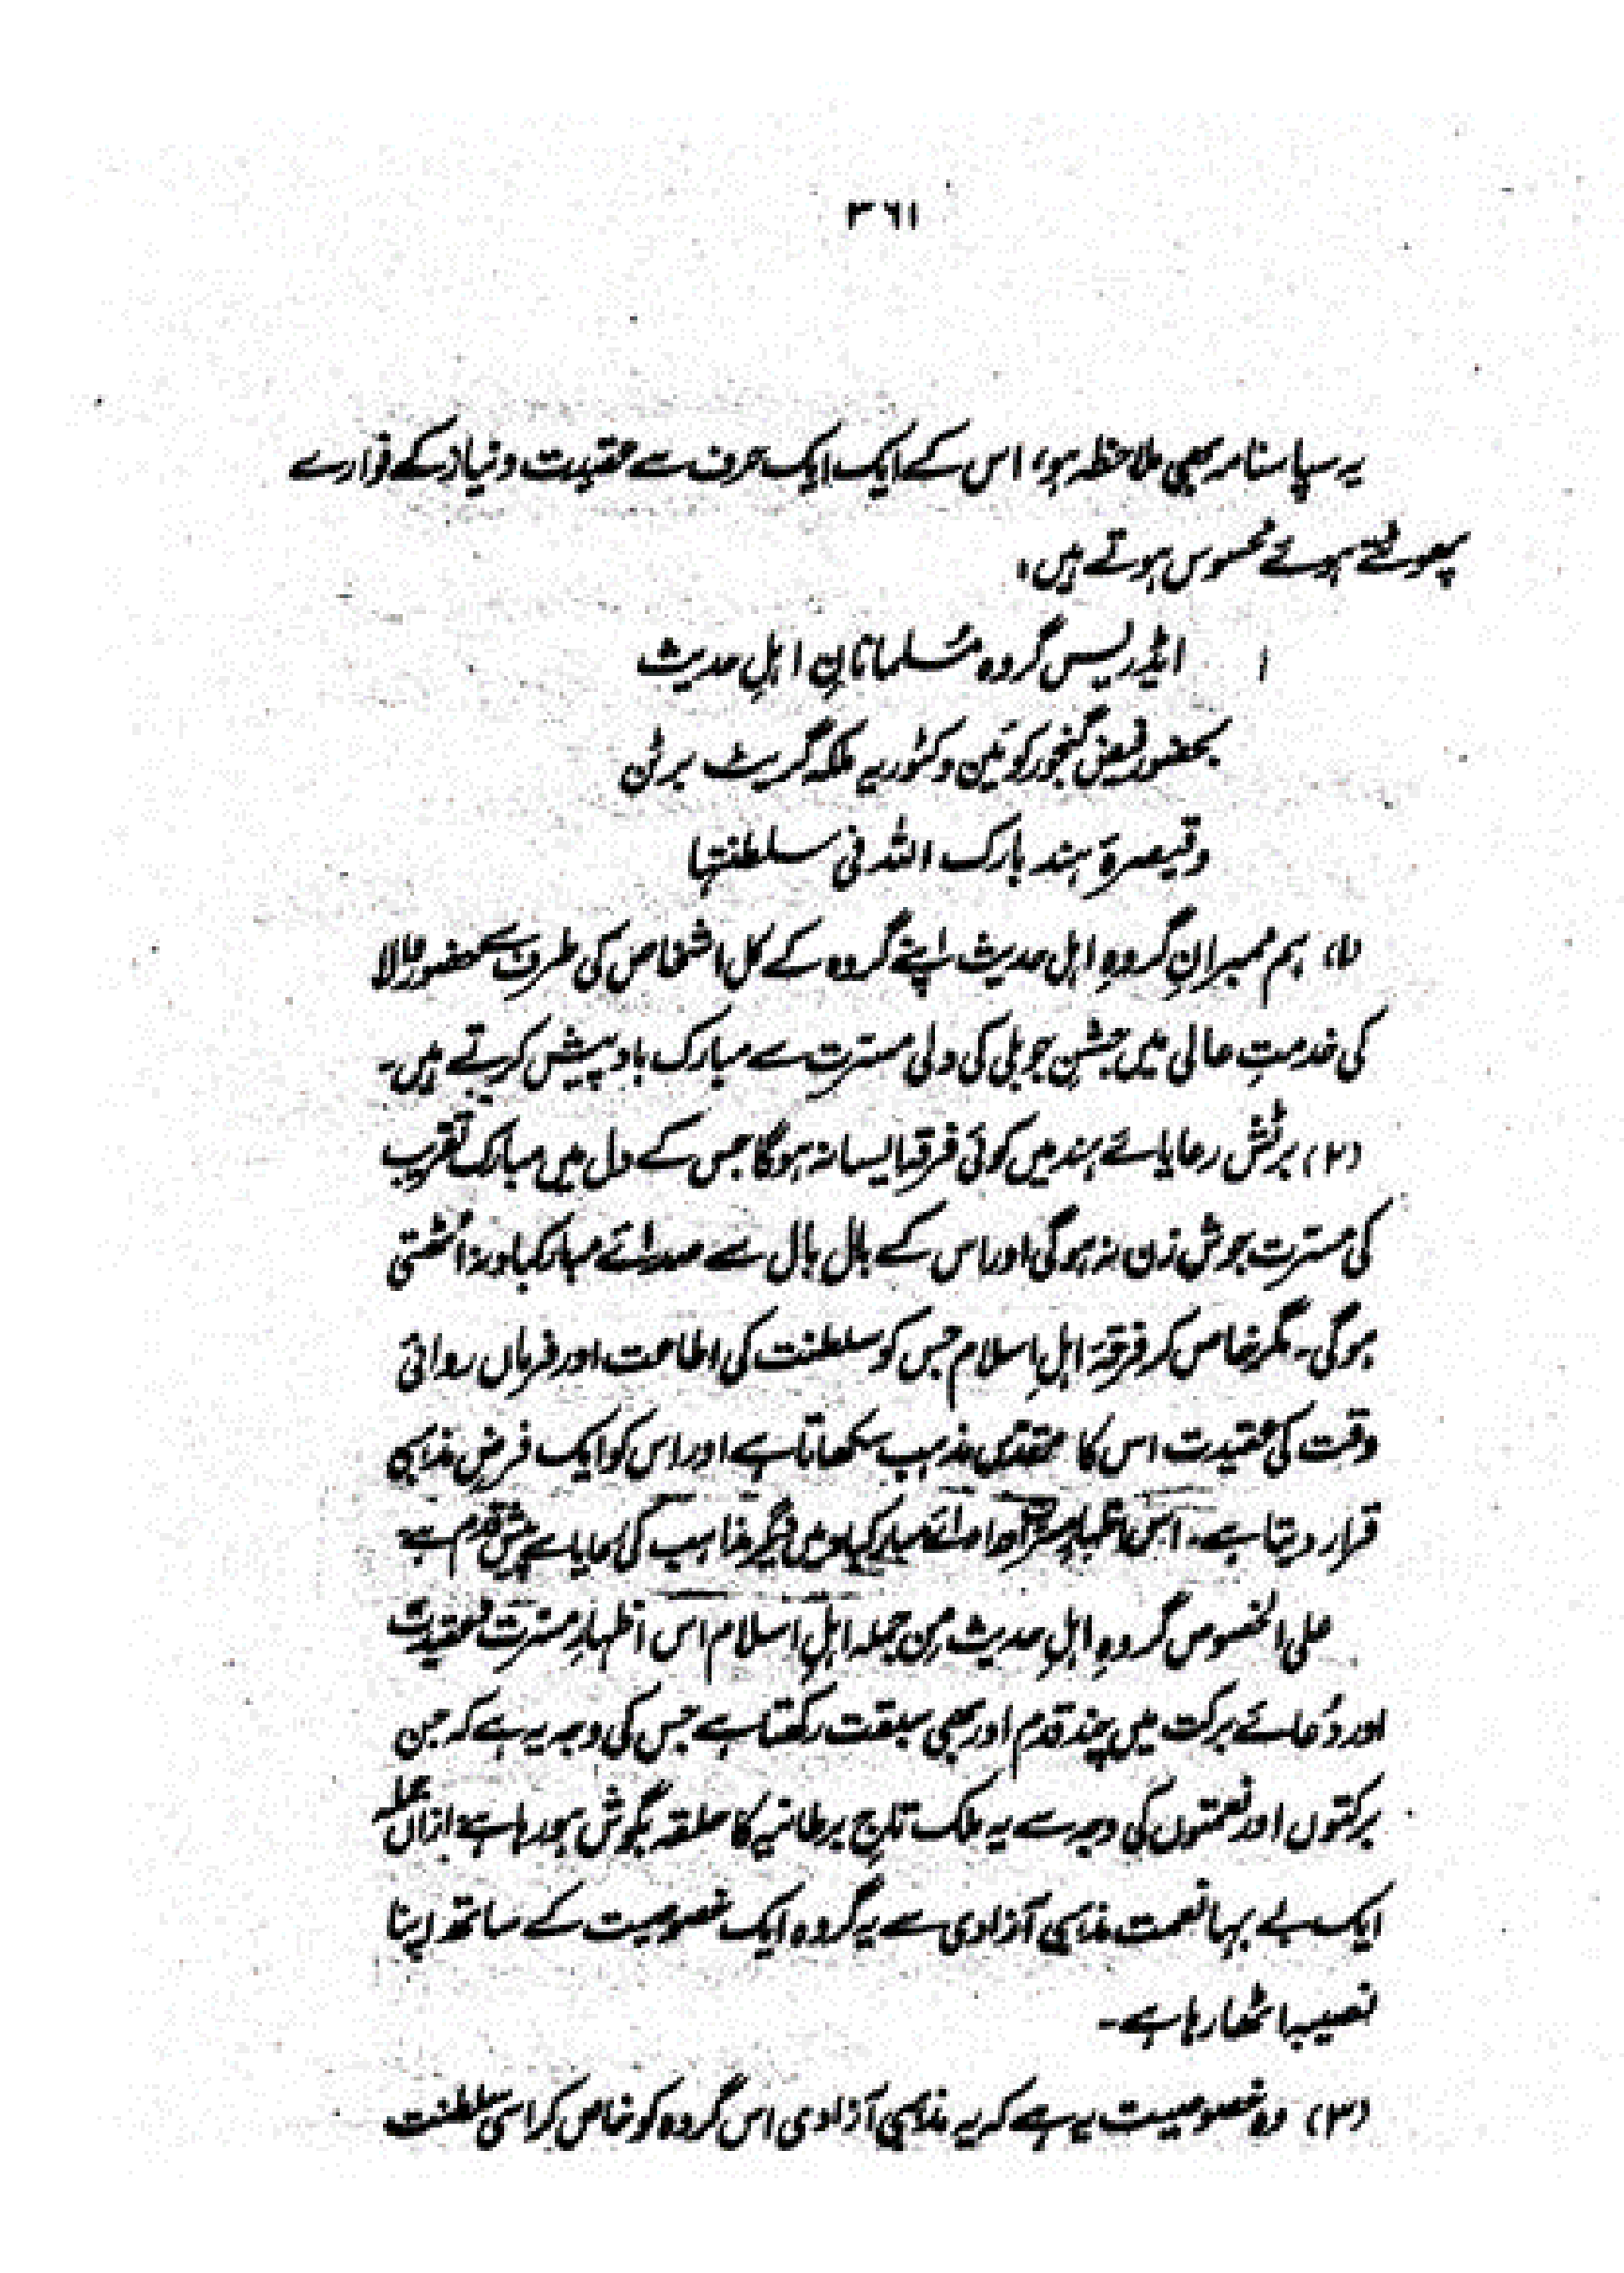 ٣٦١
یہ سپاسنامہ بھی ملاحظہ ہو، اس کے ایک ایک حرف سے عقیدت و نیاز کے فوارے
پھوٹتے ہوئے محسوس ہوتے ہیں،
ا ایڈریس گروہ مُسلمانانِ اہلِ حدیث
بحضور فیض گنجور کوئین وکٹوریہ ملکہ گریٹ برٹن
و قیصرۂ ہند بارک اللہ فی سلطنتہا
(۱) ہم ممبرانِ گروہِ اہل حدیث اپنے گروہ کے کل اشخاص کی طرف سے حضور والا
کی خدمتِ عالی میں جشنِ جوبلی کی دلی مسرّت سے مبارک باد پیش کرتے ہیں۔
(۲) برٹش رعایائے ہند میں کوئی فرقہ ایسا نہ ہوگا جس کے دل میں مبارک تقریب
کی مسرّت جوش زن نہ ہوگی اور اس کے بال بال سے صدائے مبارکباد نہ اُٹھتی
ہوگی۔ مگر خاص کر فرقۂ اہلِ اسلام جس کو سلطنت کی اطاعت اور فرماں روائے
وقت کی عقیدت اس کا مقدس مذہب سکھاتا ہے اور اس کو ایک فرضِ مذہبی
قرار دیتا ہے۔ اس اظہار مسرت اور ادائے مبارکباد میں دیگر مذاہب کی رعایا سے پیش قدم ہے۔
علی الخصوص گروہِ اہلِ حدیث من جملہ اہلِ اسلام اس اظہارِ مسرّت و عقیدت
اور دُعائے برکت میں چند قدم اور بھی سبقت رکھتا ہے جس کی وجہ یہ ہے کہ جن
برکتوں اور نعمتوں کی وجہ سے یہ ملک تاجِ برطانیہ کا حلقہ بگوش ہو رہا ہے ازاں جملہ
ایک بے بہا نعمت مذہبی آزادی سے یہ گروہ ایک خصوصیت کے ساتھ اپنا
نصیبہ اٹھا رہا ہے۔
(۳) وہ خصوصیت یہ ہے کہ یہ مذہبی آزادی اس گروہ کو خاص کر اسی سلطنت